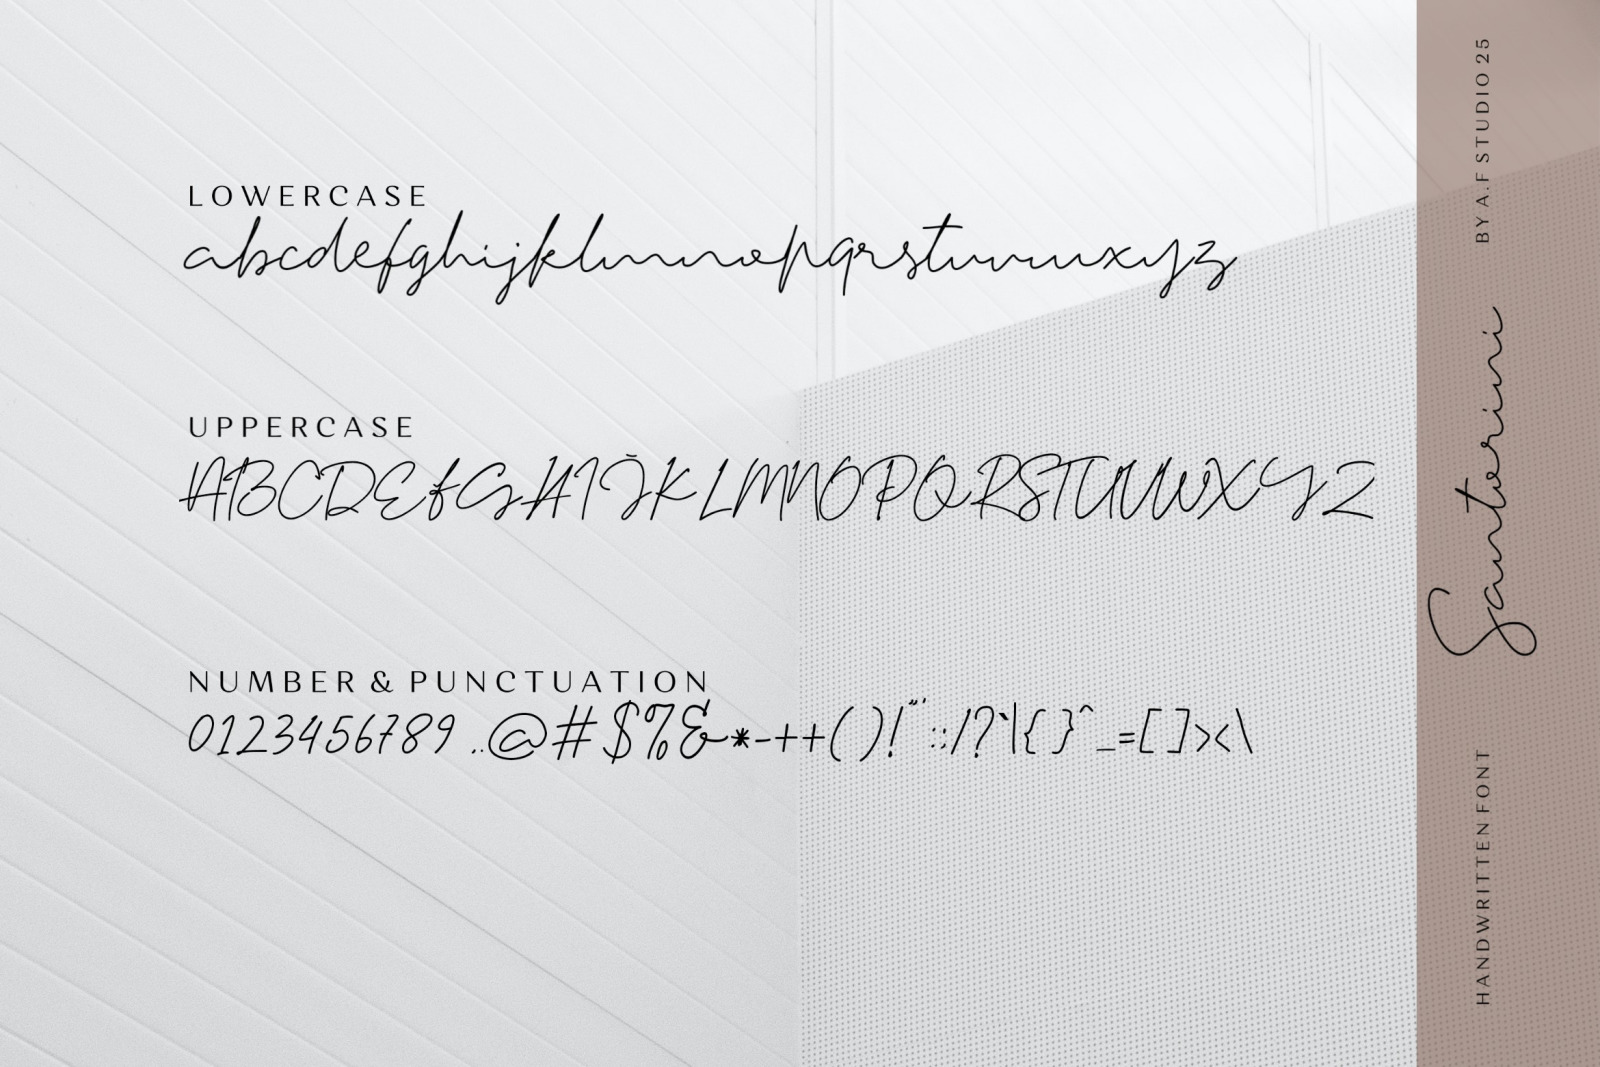 LOWERCASE
abcdefghijklmnopqrstuvwxyz
UPPERCASE
ABCDEfGHIJKLMNOPQRSTUVWXYZ
NUMBER & PUNCTUATION
0123456789 ..@#$%&*-++()!"' ::/?`|{}^_=[]><\
BY A.F STUDIO 25
Santorini
HANDWRITTEN FONT